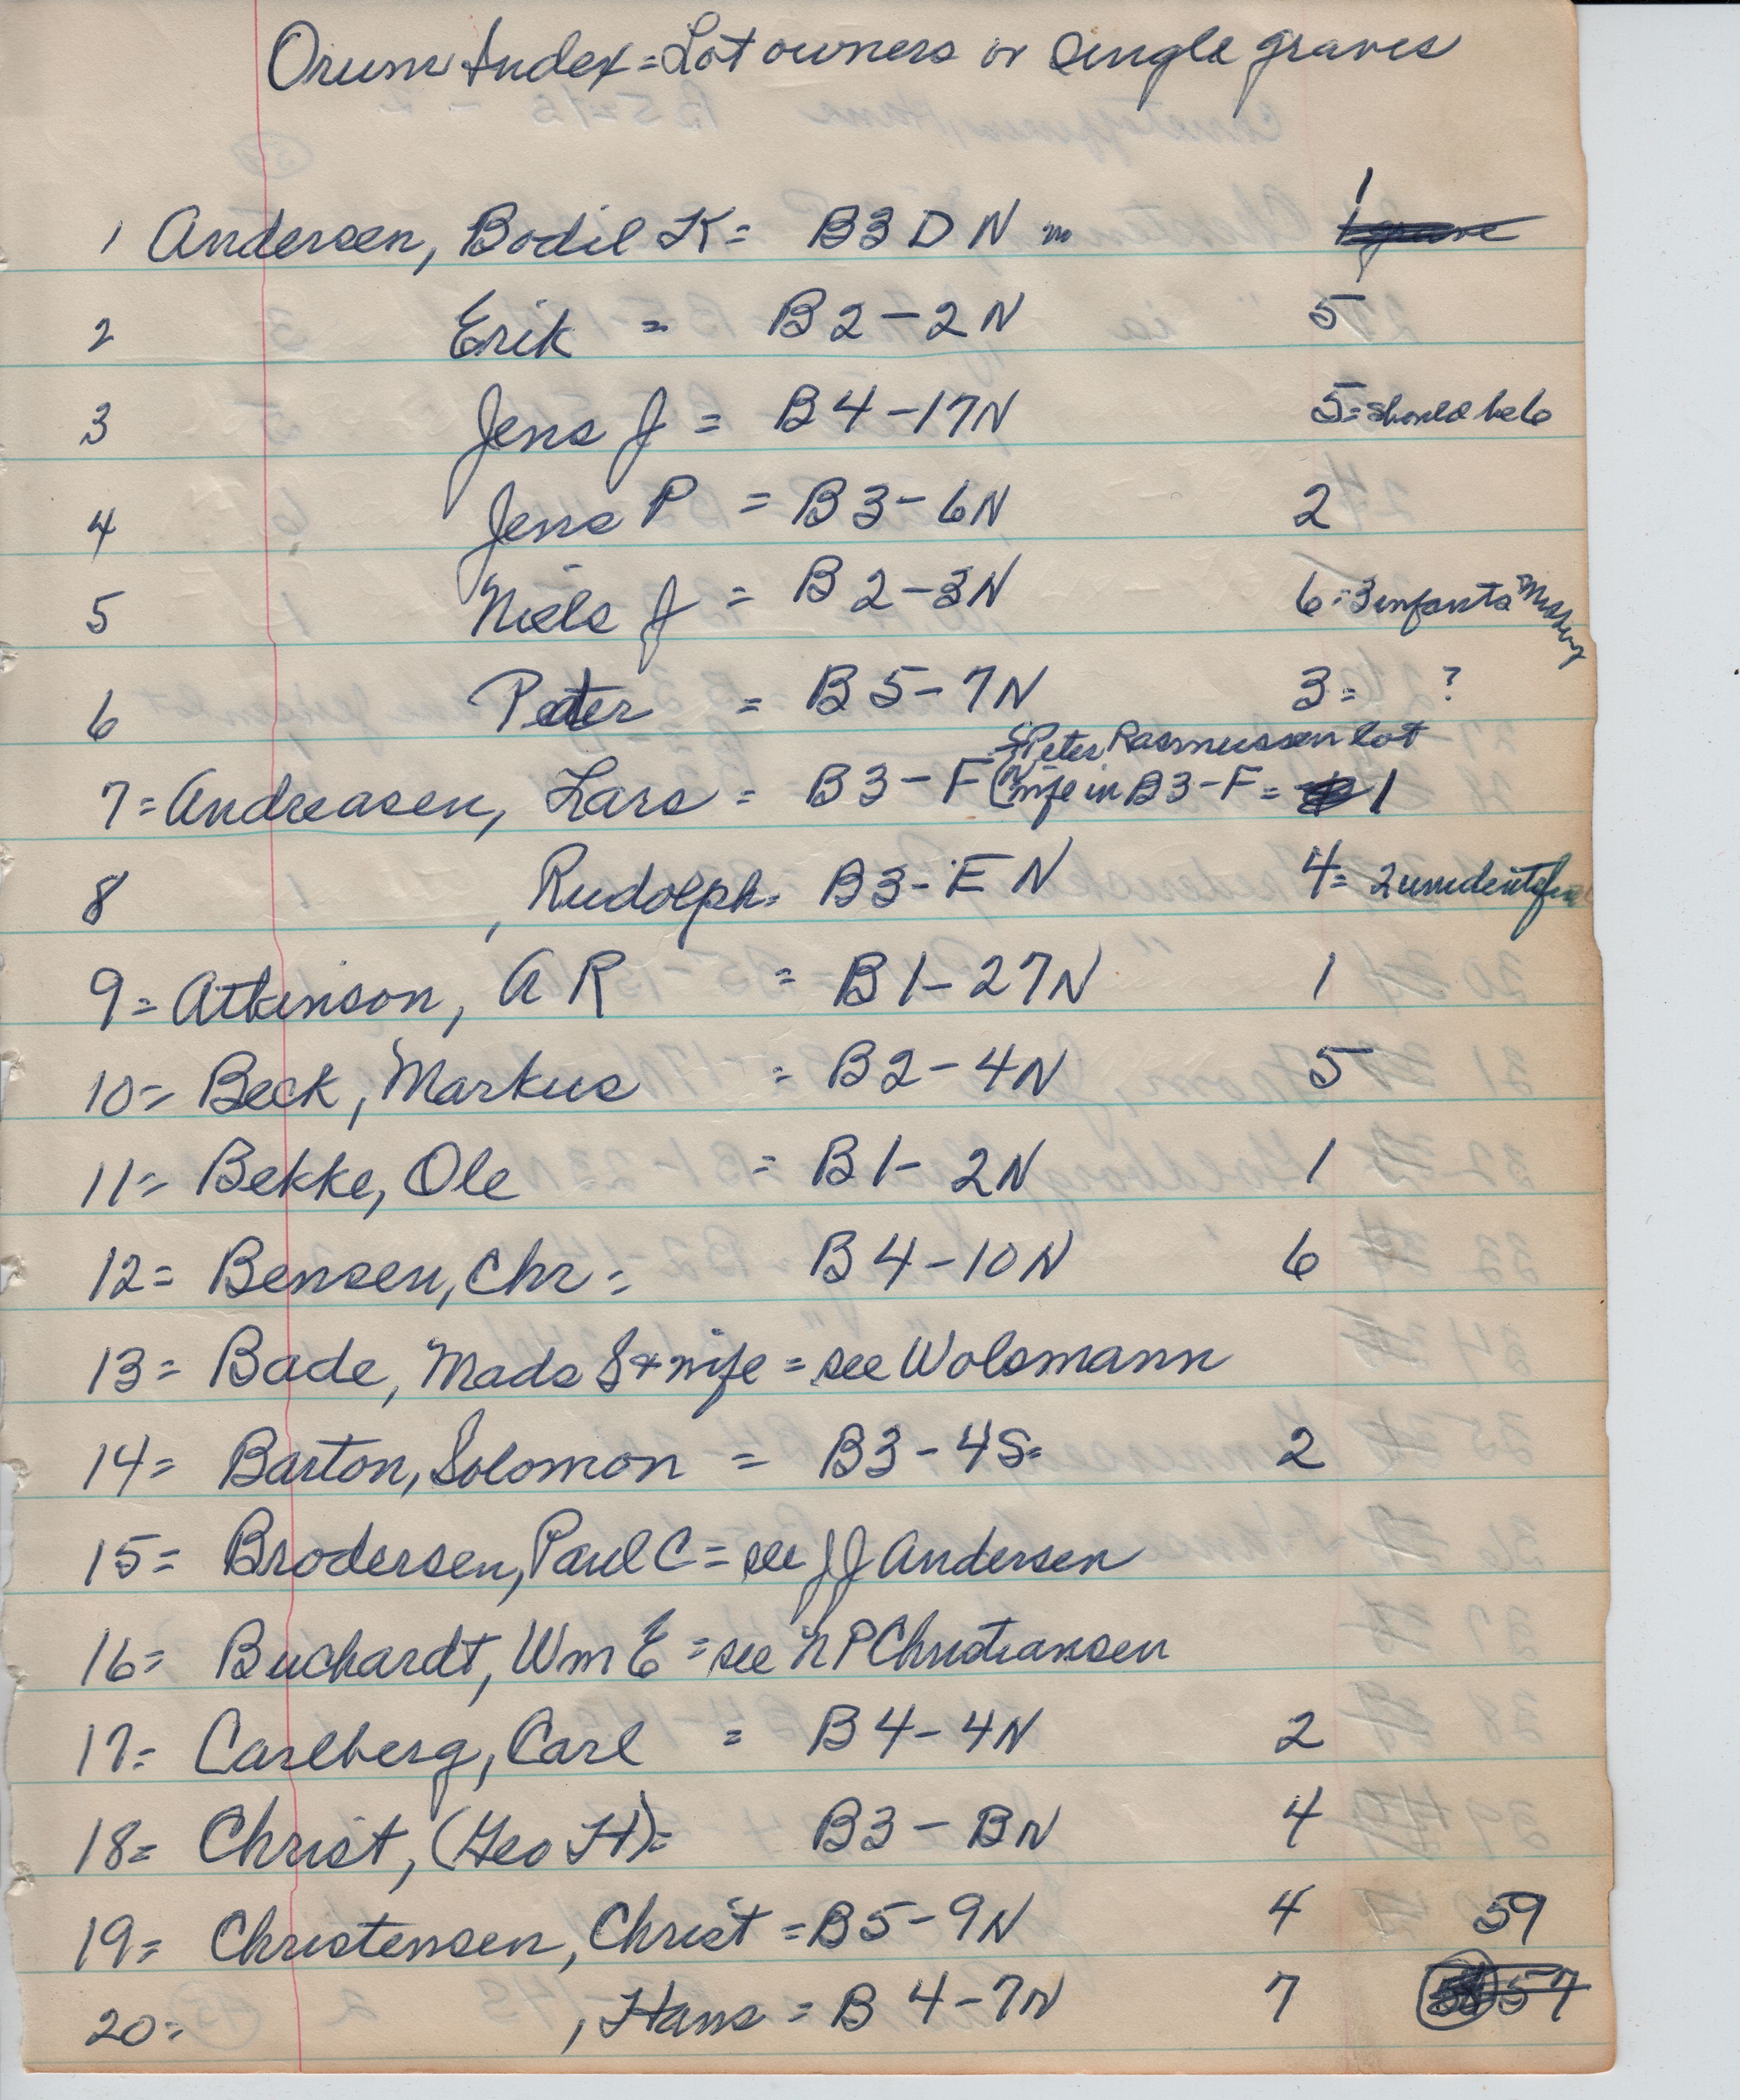 Orum Index = Lot owners or single graves
1 Andersen, Bodil K = B3 D N 1
2 Erik = B2-2N 5
3 Jens J = B4-17N 5 = should be 6
4 Jens P = B3-6N 2
5 Niels J = B2-3N 6 = 3 infants missing
6 Peter = B5-7N 3 = ?
Peter Rasmussen lot
7 = Andreasen, Lars = B3-F (wife in B3-F = 1
8 , Rudolph = B3-EN 4 = 2 unidentified
9 = Atkinson, A R = B1-27N 1
10 = Beck, Markus = B2-4N 5
11 = Bekke, Ole = B1-2N 1
12 = Bensen, Chr = B4-10N 6
13 = Bade, Mads S & wife = see Wolsmann
14 = Barton, Solomon = B3-4S = 2
15 = Brodersen, Paul C = see J J Andersen
16 = Buchardt, Wm E = see N P Christiansen
17 = Carlberg, Carl = B4-4N 2
18 = Christ, (Geo H) = B3-BN 4
19 = Christensen, Christ = B5-9N 4 59
20 = , Hans = B4-7N 7 57